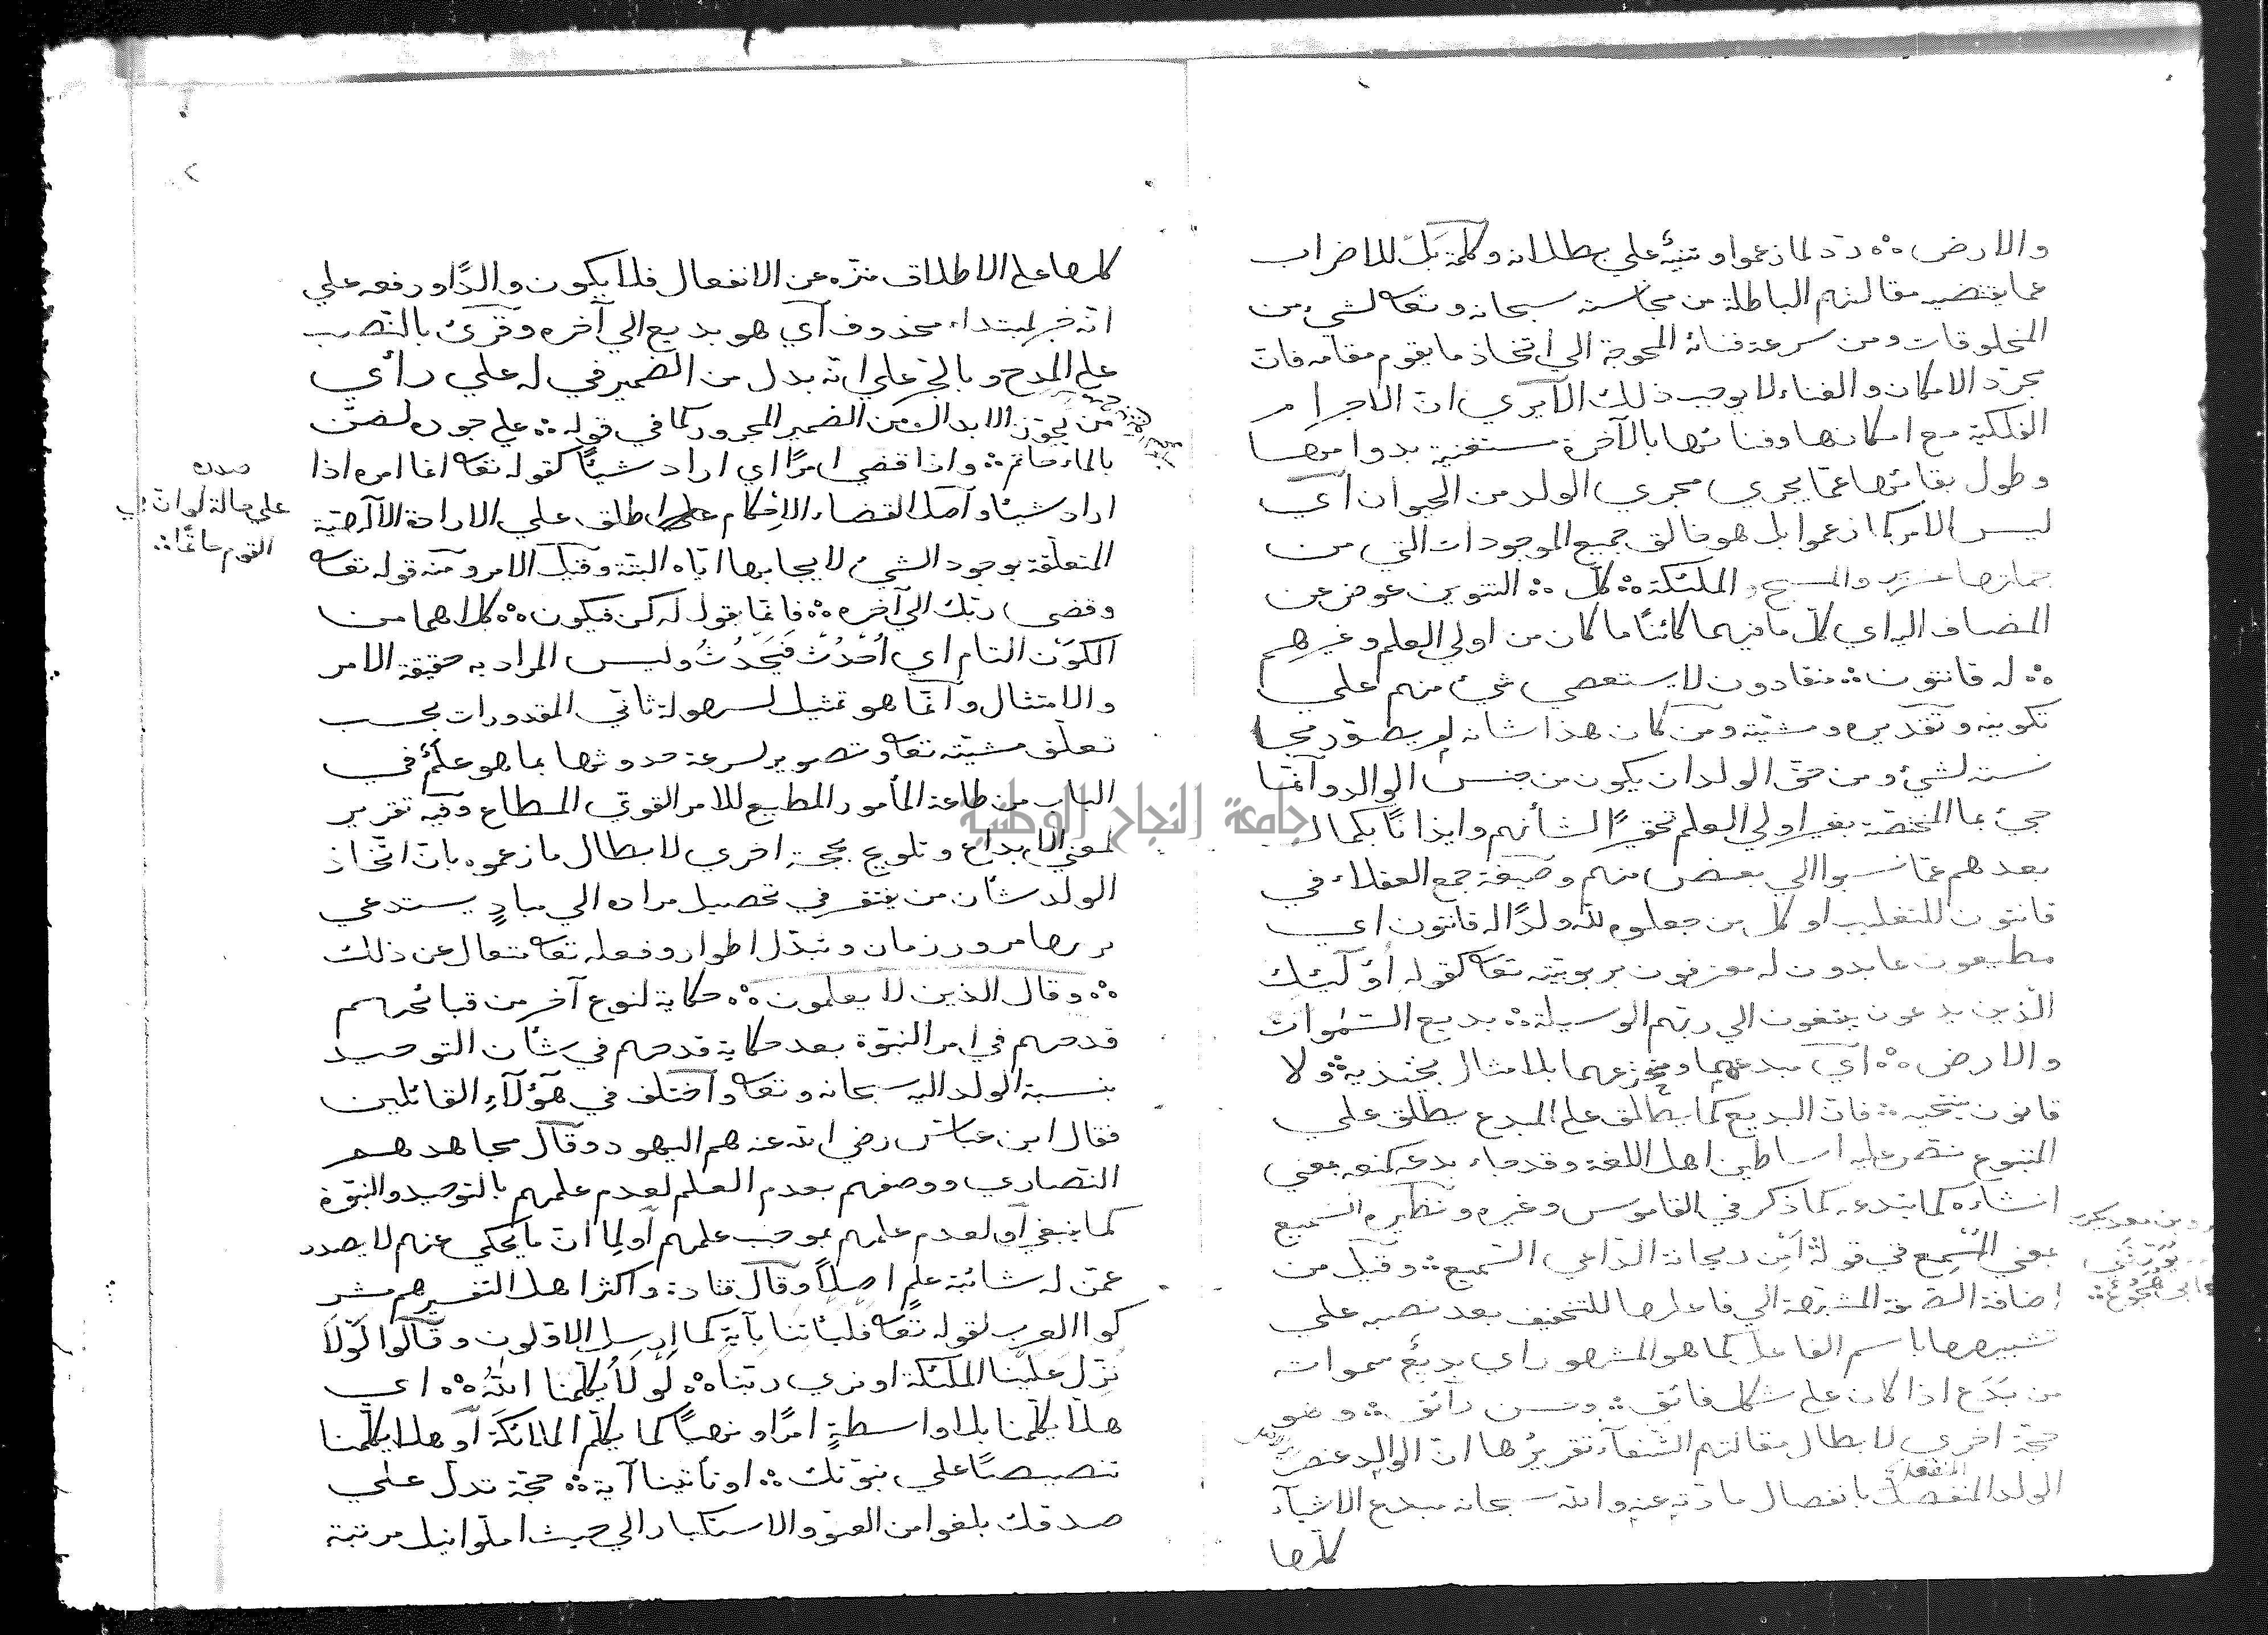 والارض ؞ رد لما زعموا وتنبيه على بطلانه وكلمة بل للاضراب
عما يقتضيه مقالتهم الباطلة من مجانسة سبحانه وتعا لشيء من
المخلوقات ومن سرعة فنائه المحوجة الي اتخاذ ما يقوم مقامه فان
مجرد الامكان والفناء لا يوجب ذلك الا يري ان الاجرام
الفلكية مع امكانها وفنائها بالآخرة مستغنية بدوامها
وطول بقائها عما يجري مجري الولد من الحيوان أي
ليس الامر كما زعموا بل هو خالق جميع الموجودات التي من
جملتها عزير والمسيح والملئكة ؞ كل ؞ التنوين عوض عن
المضاف اليه اي كل ما فيهما كائنا ما كان من اولي العلم وغيرهم
؞ له قانتون ؞ منقادون لا يستعصي شئ منهم علي
تكوينه وتقديره ومشيته ومن كان هذا شانه لم يتصور مجا
نسته لشيء ومن حق الولد ان يكون من جنس الوالد وانما
جيئ بما المختصة بغير اولي العلم تحقيرًا لشأنهم وايذانًا بكمال
بعدهم عما نسبوا الي بعض منهم وصيغة جمع العقلاء في
قانتون للتغليب او كل من جعلوه لله ولدًا له قانتون اي
مطيعون عابدون له معترفون بربوبيته تعا كقوله أولئك
الذين يدعون يبتغون الي ربهم الوسيلة ؞ بديع السموات
والارض ؞ أي مبدعهما ومخترعهما بلا مثال يحتذيه ؞ ولا
قانون ينتحيه ؞ فان البديع كما يطلق علي المبدع يطلق علي
المبتدع نص عليه اساطين اهل اللغة وقد جاء بدعه كمنعه بمعني
انشاءه كما ابتدءه كما ذكر في القاموس وغيره ونظيره السميع
بمعني المُسمِع في قوله أمن ريحانة الداعي السميع ؞ وقيل من
اضافة الصفة المشبهة الي فاعلها للتخفيف بعد نصبه علي
تشبيهها باسم الفاعل كما هو المشهور اي بديع سمواته
من بَدُع اذا كان علي شكل فائق ؞ وحسن رائق ؞ وهو
حجة اخري لابطال مقالتهم الشنعآء تقريرُها ان الوالد عنصر
المنفعل
الولد المنفصل بانفصال مادته عنه والله سبحانه مبدع الاشيآء
كلها
يؤرقني
كلها علي الاطلاق منزه عن الانفعال فلا يكون والدًا ورفعه علي
انه خبر لمبتداء محذوف أي هو بديع الي آخره وقرئ بالنصب
علي المدح وبالجر علي انه بدل من الضمير في له علي رأي
من يجوز الابدال من الضمير المجرور كما في قوله ؞ علي جوده لضن
بالماء حاتم ؞ واذا قضي امرًا اي اراد شيئًا كقوله تعا انما امره اذا
اراد شيئا واصل القضاء الإحكام اطلق علي الارادة الالهية
المتعلقة بوجود الشيء لايجابها اياه البتة وقيل الامر ومنه قوله تعا
وقضي ربك الي آخره ؞ فانما يقول له كن فيكون ؞ كلاهما من
الكون التام اي أُحْدُثْ فَيَحْدُثُ وليس المراد به حقيقة الامر
والامتثال وانما هو تمثيل لسهولة تأتي المقدورات بحسب
تعلق مشيته تعا وتصوير لسرعة حدوثها بما هو علم في
الباب من طاعة المأمور المطيع للامر القوي المطاع وفيه تقرير
لمعني الابداع وتلويح بحجة اخري لابطال ما زعموه بان اتخاذ
الولد شأن من يفتقر في تحصيل مراده الي مبادٍ يستدعي
ترتبها مرور زمان وتبدل اطوار وفعله تعا متعال عن ذلك
؞ وقال الذين لا يعلمون ؞ حكاية لنوع آخر من قبائحهم
قدحهم في امر النبوة بعد حكاية قدحهم في شأن التوحيد
بنسبة الولد اليه سبحانه وتعا واختلف في هؤلآءِ القائلين
فقال ابن عباس رضي الله عنهم اليهود وقال مجاهد هم
النصاري ووصفهم بعدم العلم لعدم علمهم بالتوحيد والنبوة
كما ينبغي او لعدم علمهم بموجب علمهم أو لِما ان ما يحكي عنهم لا يصدر
عمن له شائبة علمٍ اصلًا وقال قتادة واكثر اهل التفسير هم مشر
كوا العرب لقوله تعا فليأتنا بآية كما ارسل الاولون وقالوا لولا
نزل علينا الملئكة او نري ربنا ؞ لَوْلَا يُكلّمنا اللهُ ؞ اي
هلّا يكلمنا بلا واسطةٍ امرًا ونهيًا كما يكلم الملائكة أو هلا يكلمنا
تنصيصًا علي نبوتك ؞ او تأتينا آية ؞ حجة تدل علي
صدقك بلغوا من العتو والاستكبار الي حيث املوا نيل مرتبة
صدره
علي حالة لو ان في
القوم حاتمًا ؞
جامعة النجاح الوطنية